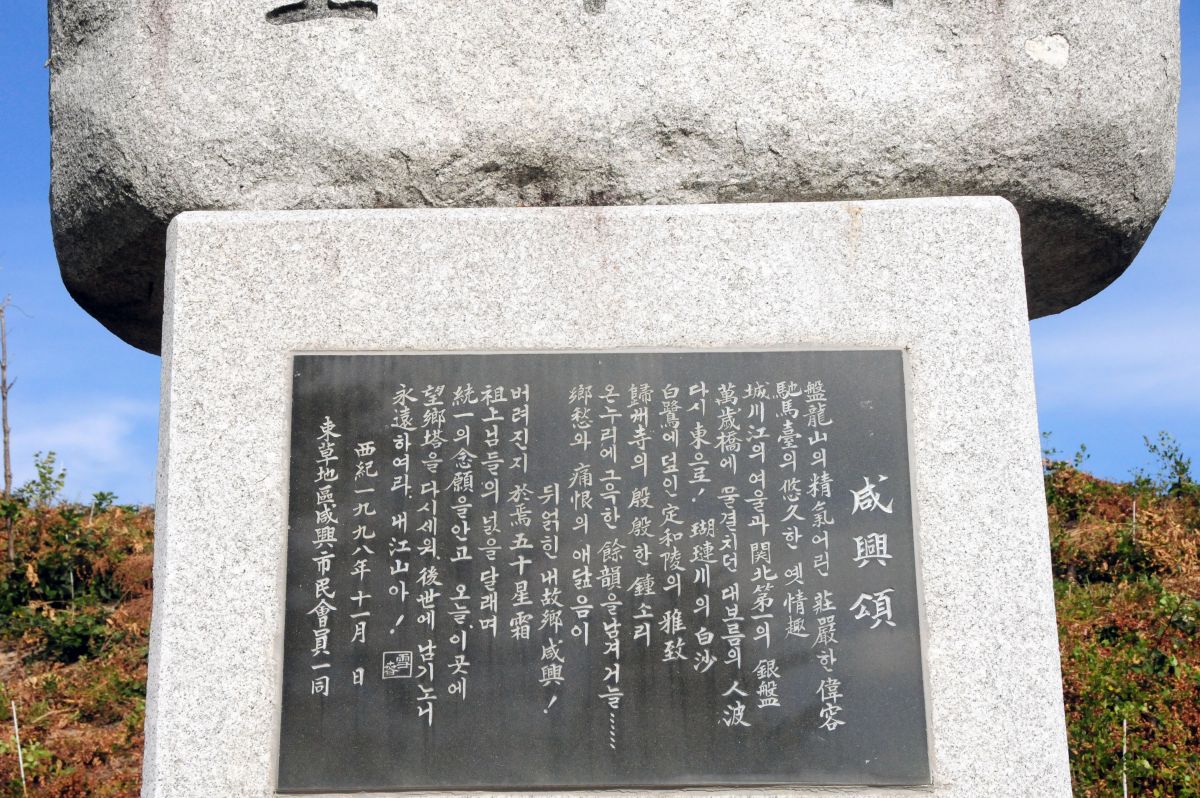 咸興頌
盤龍山의 精氣어린 莊嚴한 偉容
馳馬臺의 悠久한 옛 情趣
城川江의 여울과 関北第一의 銀盤
萬歲橋에 물결치던 대보름의 人波
다시 東으로! 瑚璉川의 白沙
白鷺에 덮인 定和陵의 雅致
歸州寺의 殷殷한 鍾소리
온누리에 그윽한 餘韻을 남겨거늘……
鄕愁와 痛恨의 애닯음이
뒤얽힌 내故鄕 咸興!
버려진지 於焉 五十星霜
祖上님들의 넋을 달래며
統一의 念願을 안고 오늘, 이곳에
望鄕塔을 다시세워, 後世에 남기노니
永遠하여라. 내江山아!
西紀一九九八年 十一月 日
束草地區咸興市民會員一同